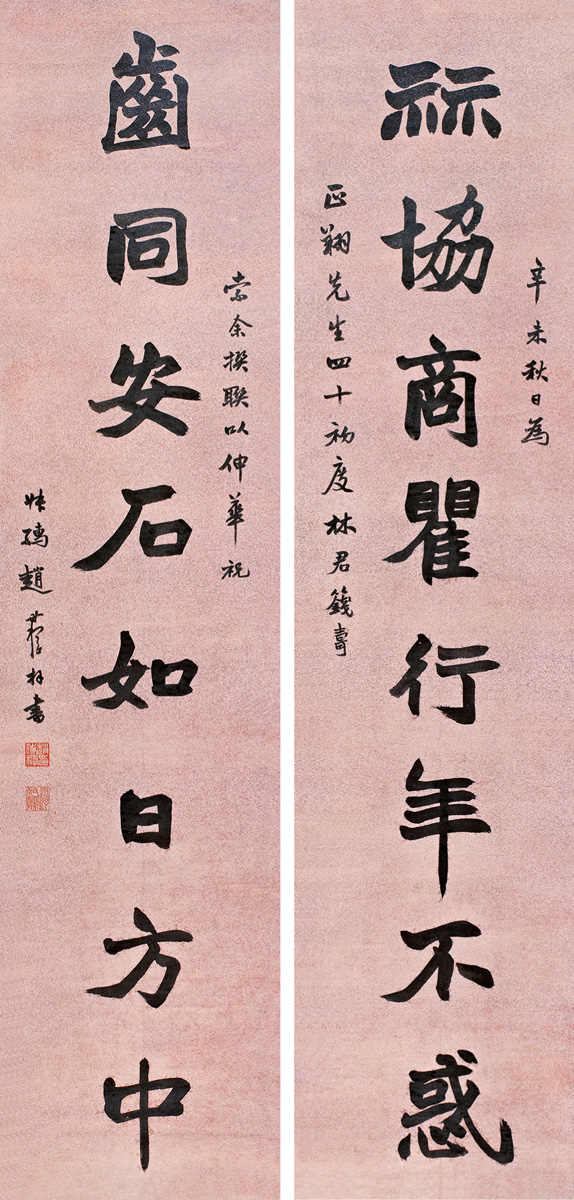 辛未秋日為
祘協商瞿行年不惑
正翔先生四十初度林君籛壽
索余撰聯以伸華祝
齒同安石如日方中
趙書